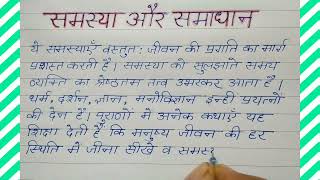 समस्या और समाधान
ये समस्याएँ वस्तुतः जीवन की प्रगति का मार्ग
प्रशस्त करती है। समस्या को सुलझाते समय
व्यक्ति का श्रेष्ठतम तत्व उभरकर आता है।
धर्म, दर्शन, ज्ञान, मनोविज्ञान इन्हीं प्रयत्नों
की देन हैं। पुराणों मे अनेक कथाएँ यह
शिक्षा देती हैं कि मनुष्य जीवन की हर
स्थिति मे जीना सीखे व समस्